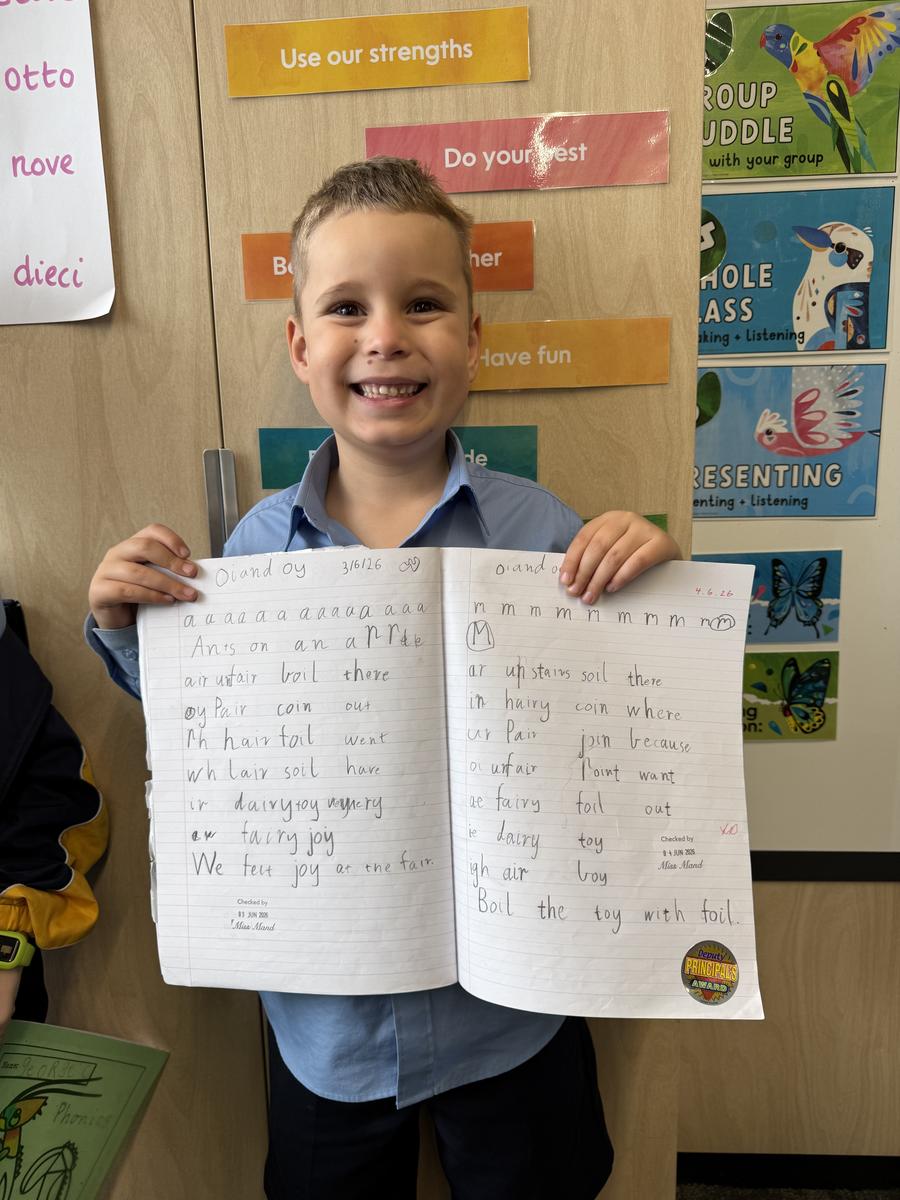 otto
nove
dieci
Use our strengths
Do your best
Have fun
ROUP
UDDLE
with your group
HOLE
LASS
aking + listening
RESENTING
enting + listening
Oi and oy 3/6/26
a a a a a a a a a a a a a
Ants on an
air unfair boil there
oy Pair coin out
rh hair foil went
wh lair soil have
ir dairy toy
fairy joy
We felt joy at the fair.
Checked by
03 JUN 2026
Miss Mand
oi and
4.6.26
m m m m m m m m m m
M
ar upstairs soil there
in hairy coin where
ur Pair join because
oi unfair Point want
ae fairy foil out
ie dairy toy
igh air boy
Checked by
04 JUN 2026
Miss Mand
Boil the toy with foil.
Deputy
PRINCIPAL'S
AWARD
Phonics